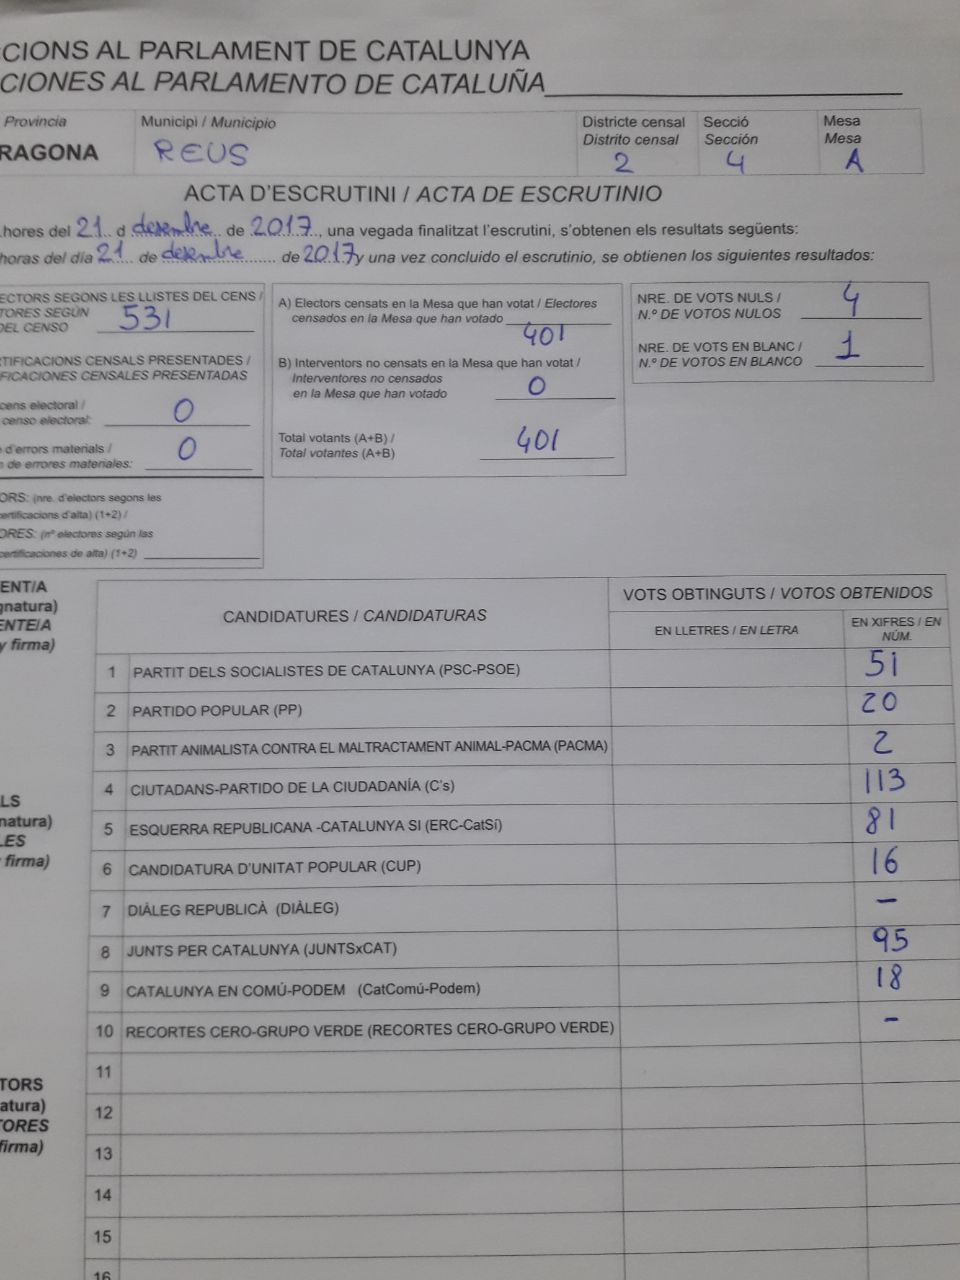 CIONS AL PARLAMENT DE CATALUNYA
CIONES AL PARLAMENTO DE CATALUÑA
Provincia
Municipi / Municipio
Districte censal
Distrito censal
Secció
Sección
Mesa
Mesa
RAGONA
REUS
2
4
A
ACTA D'ESCRUTINI / ACTA DE ESCRUTINIO
hores del 21 d desembre de 2017, una vegada finalitzat l'escrutini, s'obtenen els resultats següents:
horas del día 21 de desembre de 2017 y una vez concluido el escrutinio, se obtienen los siguientes resultados:
ECTORS SEGONS LES LLISTES DEL CENS /
TORES SEGÚN
DEL CENSO 531
TIFICACIONS CENSALS PRESENTADES /
FICACIONES CENSALES PRESENTADAS
cens electoral /
censo electoral: 0
d'errors materials /
de errores materiales: 0
ORS: (nre. d'electors segons les
certificacions d'alta) (1+2) /
ORES: (nº electores según las
certificaciones de alta) (1+2)
A) Electors censats en la Mesa que han votat / Electores
censados en la Mesa que han votado 401
B) Interventors no censats en la Mesa que han votat /
Interventores no censados
en la Mesa que han votado 0
Total votants (A+B) /
Total votantes (A+B) 401
NRE. DE VOTS NULS /
N.º DE VOTOS NULOS 4
NRE. DE VOTS EN BLANC /
N.º DE VOTOS EN BLANCO 1
ENT/A
gnatura)
ENTE/A
y firma)
LS
natura)
LES
firma)
TORS
atura)
TORES
firma)
CANDIDATURES / CANDIDATURAS
VOTS OBTINGUTS / VOTOS OBTENIDOS
EN LLETRES / EN LETRA
EN XIFRES / EN
NÚM.
1 PARTIT DELS SOCIALISTES DE CATALUNYA (PSC-PSOE) 51
2 PARTIDO POPULAR (PP) 20
3 PARTIT ANIMALISTA CONTRA EL MALTRACTAMENT ANIMAL-PACMA (PACMA) 2
4 CIUTADANS-PARTIDO DE LA CIUDADANÍA (C's) 113
5 ESQUERRA REPUBLICANA -CATALUNYA SI (ERC-CatSí) 81
6 CANDIDATURA D'UNITAT POPULAR (CUP) 16
7 DIÀLEG REPUBLICÀ (DIÀLEG) -
8 JUNTS PER CATALUNYA (JUNTSxCAT) 95
9 CATALUNYA EN COMÚ-PODEM (CatComú-Podem) 18
10 RECORTES CERO-GRUPO VERDE (RECORTES CERO-GRUPO VERDE) -
11
12
13
14
15
16